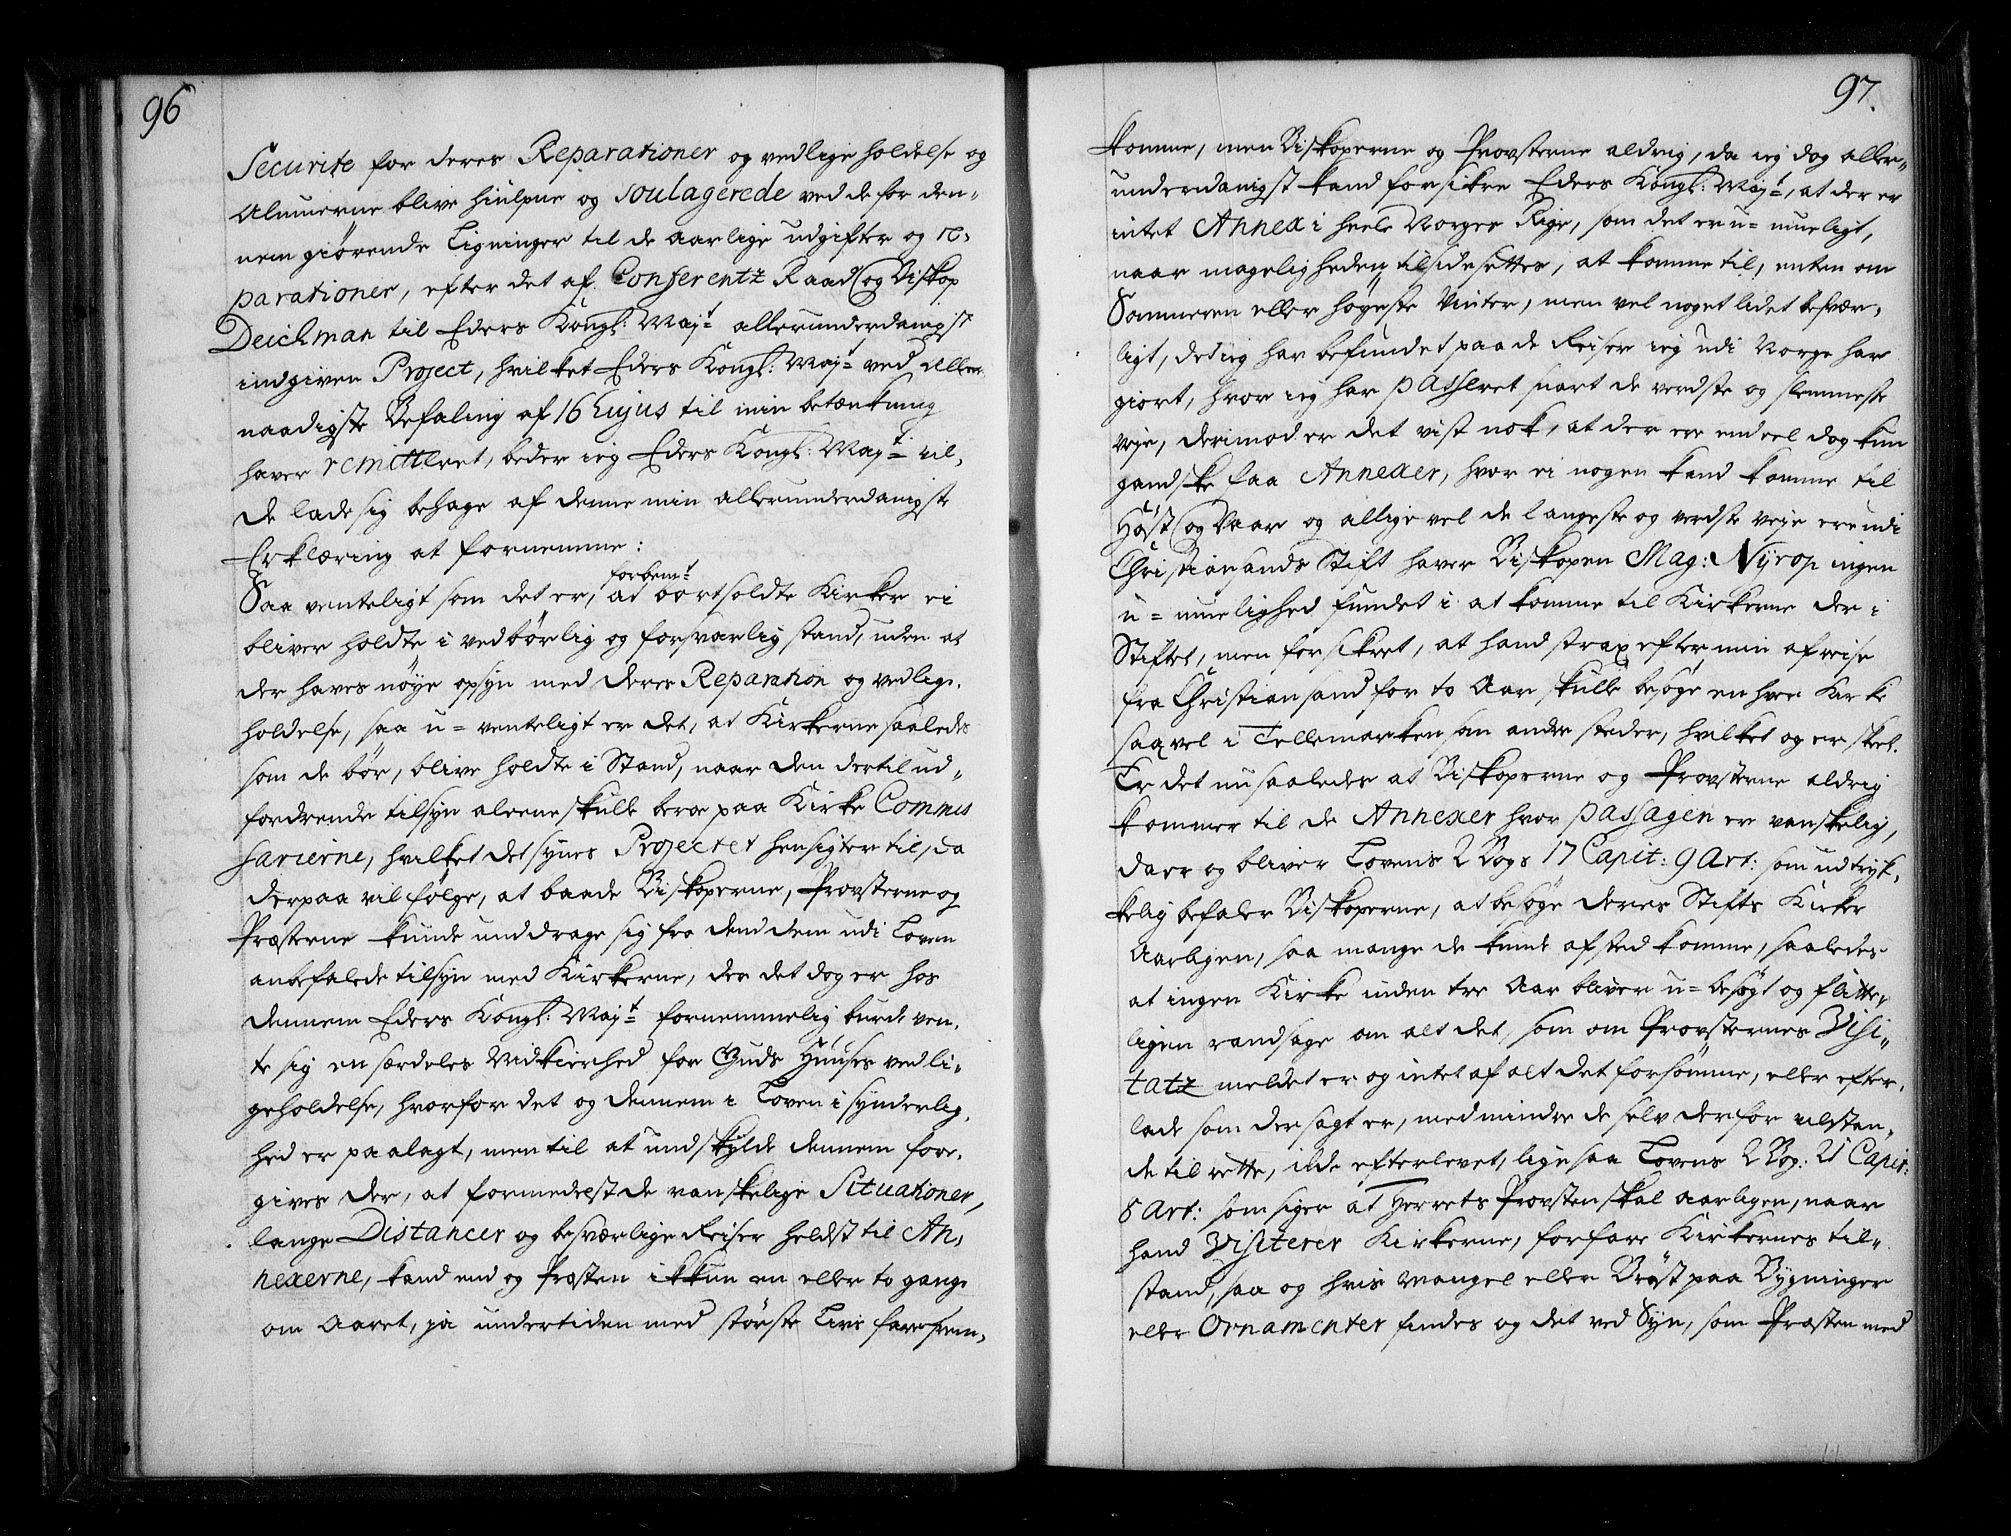 96
Securite for deres Reparationer og vedlige holdelse og
Almuerne blive hiulpne og soulagerede ved de for den-
nem giørende Ligninger til de aarlige udgifter og re-
parationer, efter det af Conferentz Raad og Biskop
Deichman til Eders Kongl: Mayt allerunderdanigst
indgiven Project, hvilket Eders Kongl: Mayt ved Aller-
naadigste Befaling af 16 hujus til min betænkning
haver remitteret, beder ieg Eders Kongl: Mayt vil-
de lade sig behage af denne min allerunderdanigste
Erklæring at fornemme:
forbemt
Saa venteligt som det er, at bortsoldte Kirker ei
bliver holdte i vedbørlig og forsvarlig stand, uden at
der haves nøye opsyn med deres Reparation og vedlige-
holdelse, saa u-venteligt er det, at Kirkerne saaledes
som de bør, blive holdte i Stand, naar den dertil ud-
fordrende tilsyn aleene skulle beroe paa Kirke Commis
sarierne, hvilket det synes Projectet hensigter til, da
derpaa vil følge, at baade Biskoperne, Provsterne og
Præsterne kunde unddrage sig fra dend dem udi Loven
anbefalede tilsyn med Kirkerne, der det dog er hos
dennem Eders Kongl: Mayt fornemmelig burde ven-
te sig en særdeles Nidkierhed for Guds Huuses vedli-
geholdelse, hvorfor det og dennem i Loven i synderlig-
hed er paalagt, men til at undskylde dennem fore-
gives der, at formedelst de vanskelige Situationer,
lange Distancer og besværlige Reiser heldst til An-
nexerne, kand end og Præsten ikkun en eller to gange
om Aaret, ja undertiden med største Livs fare frem-
97.
komme, men Biskoperne og Provsterne aldrig, da ieg dog aller-
underdanigst kand forsikre Eders Kongl: Mayt, at der er
intet Annex i heele Norges Rige, som det er u-mueligt,
naar mageligheden tilsidesettes, at komme til, enten om
Sommeren eller høgeste Vinter, men vel noget lidet besvær-
ligt, det ieg har befundet paa de Reiser ieg udi Norge har
giort, hvor ieg har passeret snart de verdste og slemmeste
veje, derimod er det vist nok, at der ere endeel dog kun
gandske faa Annexer, hvor ei nogen kand komme til
Høst og Vaar og allige vel de længste og verdste veje ere udi
Christiansands Stift haver Biskopen Mag: Nyrop ingen
u-muelighed fundet i at komme til Kirkerne der i
Stiftet, men forsikret, at hand strax efter min afreise
fra Christiansand for to Aar skulle besøge en hver Kirke
saavel i Tellemarken som andre steder, hvilket og er skeet.
Er det nu saaledes at Biskoperne og Provsterne aldrig
kommer til de Annexer hvor passagen er vanskelig,
da er og bliver Lovens 2 Bogs 17 Capit: 9 Art: som udtryk-
kelig befaler Biskoperne, at besøge deres Stifts Kirker
Aarligen, saa mange de kunde afsted komme, saaledes
at ingen Kirke inden tre Aar bliver u-besøgt og flitte-
ligen randsage om alt det, som om Provsternes Visi-
tatz meldet er og intet af alt det forsømme, eller efter-
lade som der sagt er, med mindre de selv derfor vil stan-
de til rette, ilde efterlevet, lige saa Lovens 2 Bog: 21 Capit:
8 Art: som siger at Herrets Provsten skal Aarligen, naar
hand visiterer Kirkerne, forfare Kirkernes til-
stand, saa og hvis Mangel eller Brøst paa Bygninger
eller Ornamenter findes og det ved Syn, som Præsten med